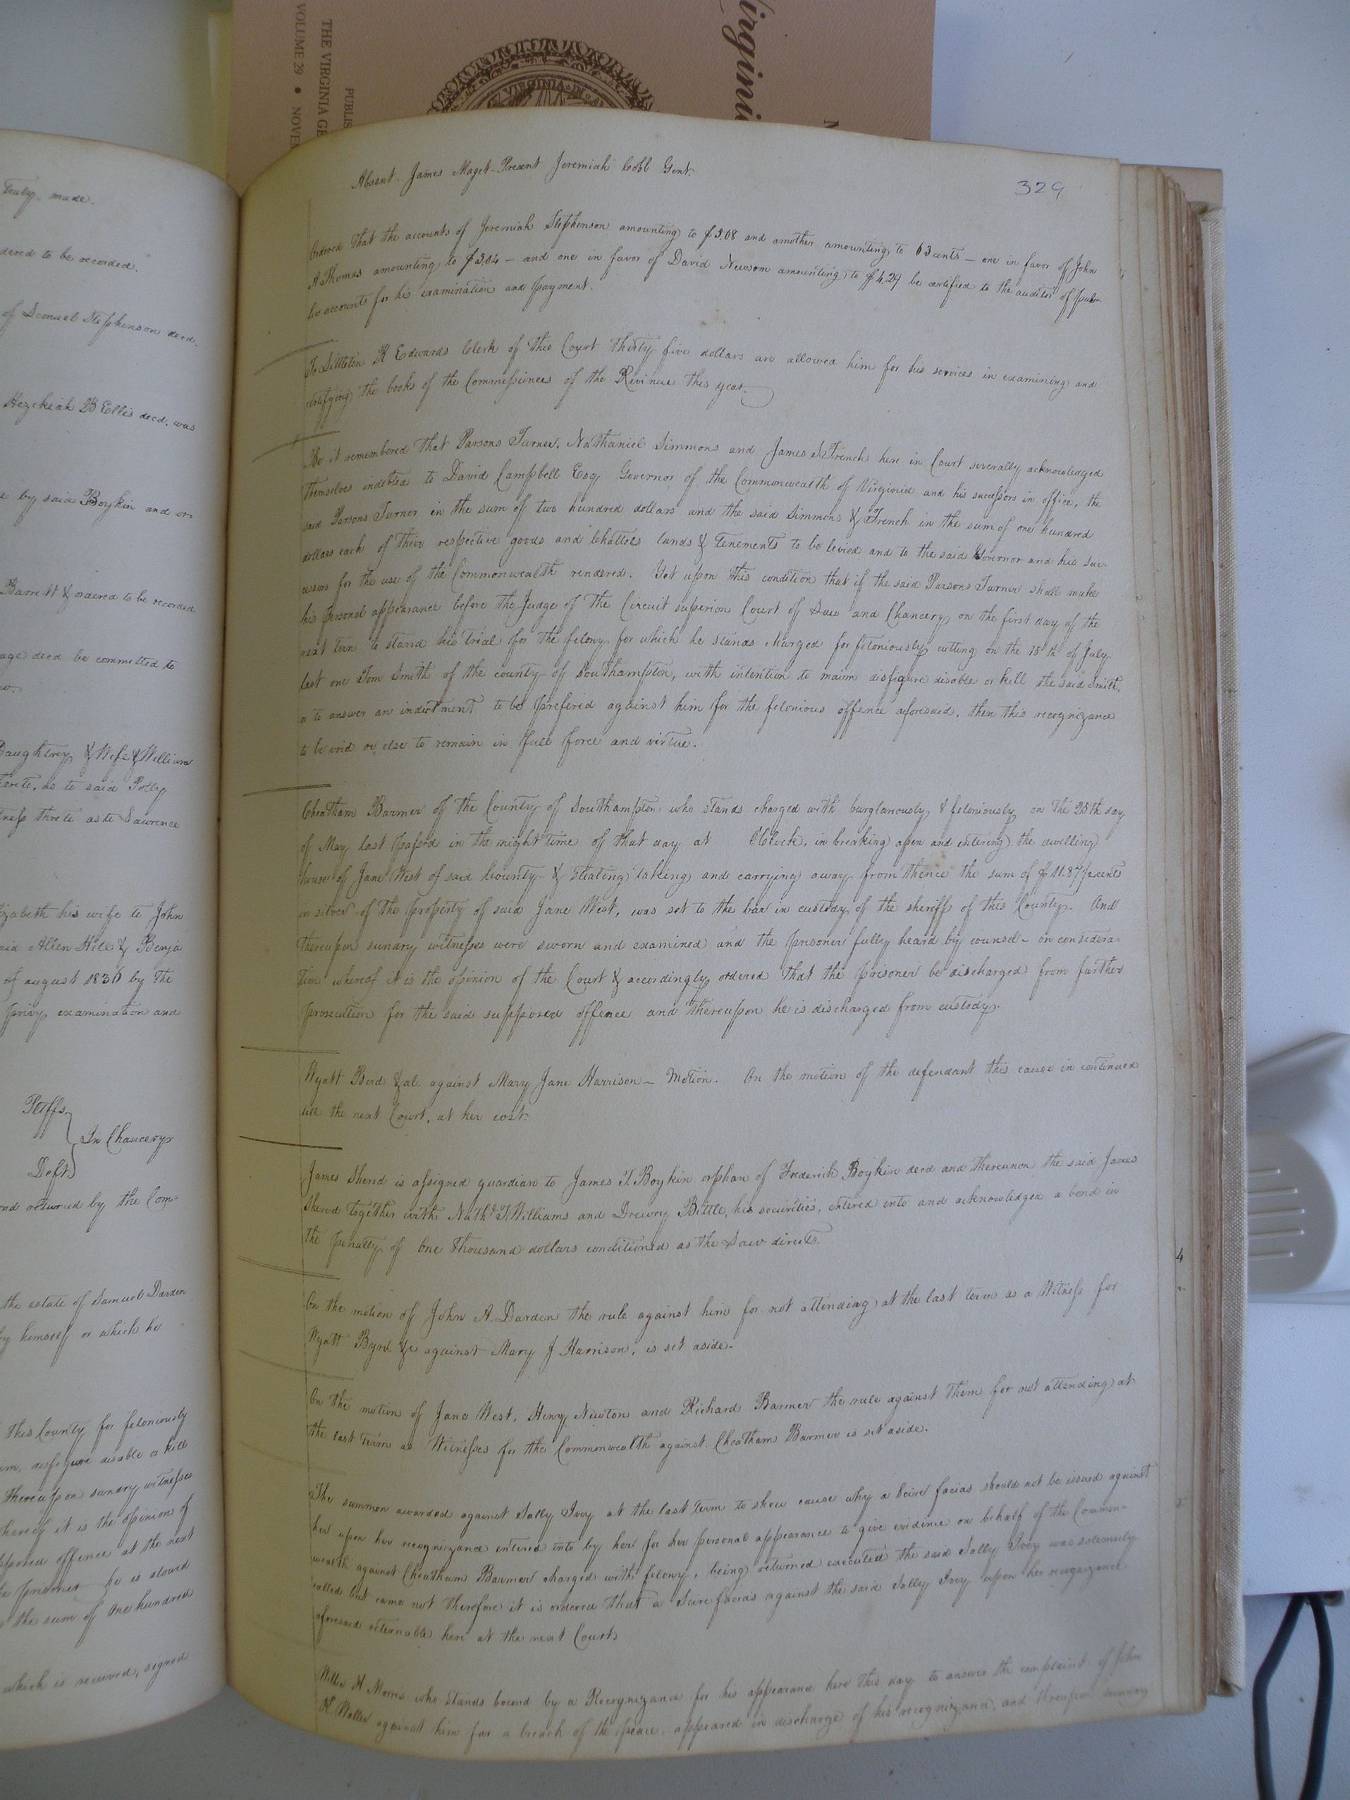 Virgini
THE VIRGINIA GE
VOLUME 29 • NOVE
PUBLIS
VIRGINIA
329
Truly made.
dered to be recorded.
of Lemuel Stephenson decd.
Hezekiah B Ellis decd. was
e by said Boykin and or-
Barrett & ordered to be recorded
age decd be committed to
Daughtrey & Wife & William
ferete, as to said Polly
ness threte as to Lawrence
izabeth his wife to John
aid Allen Hile & Benja
of august 1836 by the
privy examination and
Pltffs
In Chancery
Deft
and returned by the Com-
the estate of Samuel Darden
by himself or which he
this County for feloniously
im, disfigure disable or kill
thereupon sundry witnesses
hereof it is the opinion of
pposed offence at the next
prisoner he is allowed
the sum of One hundred
which is received, signed
Absent James Maget – Present Jeremiah Cobb Gent.
Ordered that the accounts of Jeremiah Stephenson amounting to $5.08 and another amounting to 63 cents – one in favor of John
A Thomas amounting to $3.04 – and one in favor of David Newsom amounting to $4.29 be certified to the auditor of pub-
lic accounts for his examination and payment.
To Littleton R Edwards Clerk of this Court thirty five dollars are allowed him for his services in examining and
certifying the books of the Commissioners of the Revinue this year.
Be it remembered that Parsons Turner, Nathaniel Simmons and James S French here in Court severally acknowledged
themselves indebted to David Campbell Esq Governor of the Commonwealth of Virginia and his successors in office, the
said Parsons Turner in the sum of two hundred dollars and the said Simmons & French in the sum of one hundred
dollars each of their respective goods and Chattels lands & tenements to be levied and to the said Governor and his suc-
cessors for the use of the Commonwealth rendered. Yet upon this condition that if the said Parsons Turner shall make
his personal appearance before the Judge of the Circuit superior Court of Law and Chancery on the first day of the
next term to stand his trial for the felony for which he stands charged for feloniously cutting on the 15th of July
last one Tom Smith of the county of Southampton, with intention to maim disfigure disable or kill the said Smith,
or to answer an indictment to be prefered against him for the felonious offence aforesaid, then this recognizance
to be void or else to remain in full force and virtue.
Cheatham Barmer of the County of Southampton who stands charged with burglariously & feloniously on the 25th day
of May last passed in the night time of that day at OClock, in breaking open and entering the dwelling
house of Jane West of said County & stealing taking and carrying away from thence the sum of $11.87½ cents
in silver of the property of said Jane West, was set to the bar in custody of the sheriff of this County. And
thereupon sundry witnesses were sworn and examined and the prisoner fully heard by counsel – on considera-
tion whereof it is the opinion of the Court & accordingly ordered that the prisoner be discharged from further
prosecution for the said supposed offence and thereupon he is discharged from custody.
Wyatt Bird &al against Mary Jane Harrison – Motion. On the motion of the defendant this cause in continued
till the next Court, at her cost.
James Shend is assigned guardian to James T Boykin orphan of Frederick Boykin decd and thereupon the said James
Shend together with Nathl T Williams and Drewry Bittle, his securities, entered into and acknowledged a bond in
the penalty of One thousand dollars conditioned as the Law directs.
On the motion of John A. Darden the rule against him for not attending at the last term as a Witness for
Wyatt Byrd &c against Mary J Harrison, is set aside.
On the motion of Jane West, Henry Newton and Richard Barmer the rule against them for not attending at
the last term as Witnesses for the Commonwealth against Cheatham Barmer is set aside.
The summon awarded against Sally Ivey at the last term to shew cause why a Scire facias should not be issued against
her upon her recognizance entered into by her for her personal appearance to give evidence on behalf of the Common-
wealth against Cheatham Barmer charged with felony, being returned executed the said Sally Ivey was solemnly
called but came not therefore it is ordered that a Scire facias against the said Sally Ivey upon her recognizance
aforesaid returnable here at the next Court
Miller H Morris who stands bound by a Recognizance for his appearance here this day to answer the complaint of John
K. Waller against him for a breach of the peace, appeared in discharge of his recognizance, and thereupon sundry
4